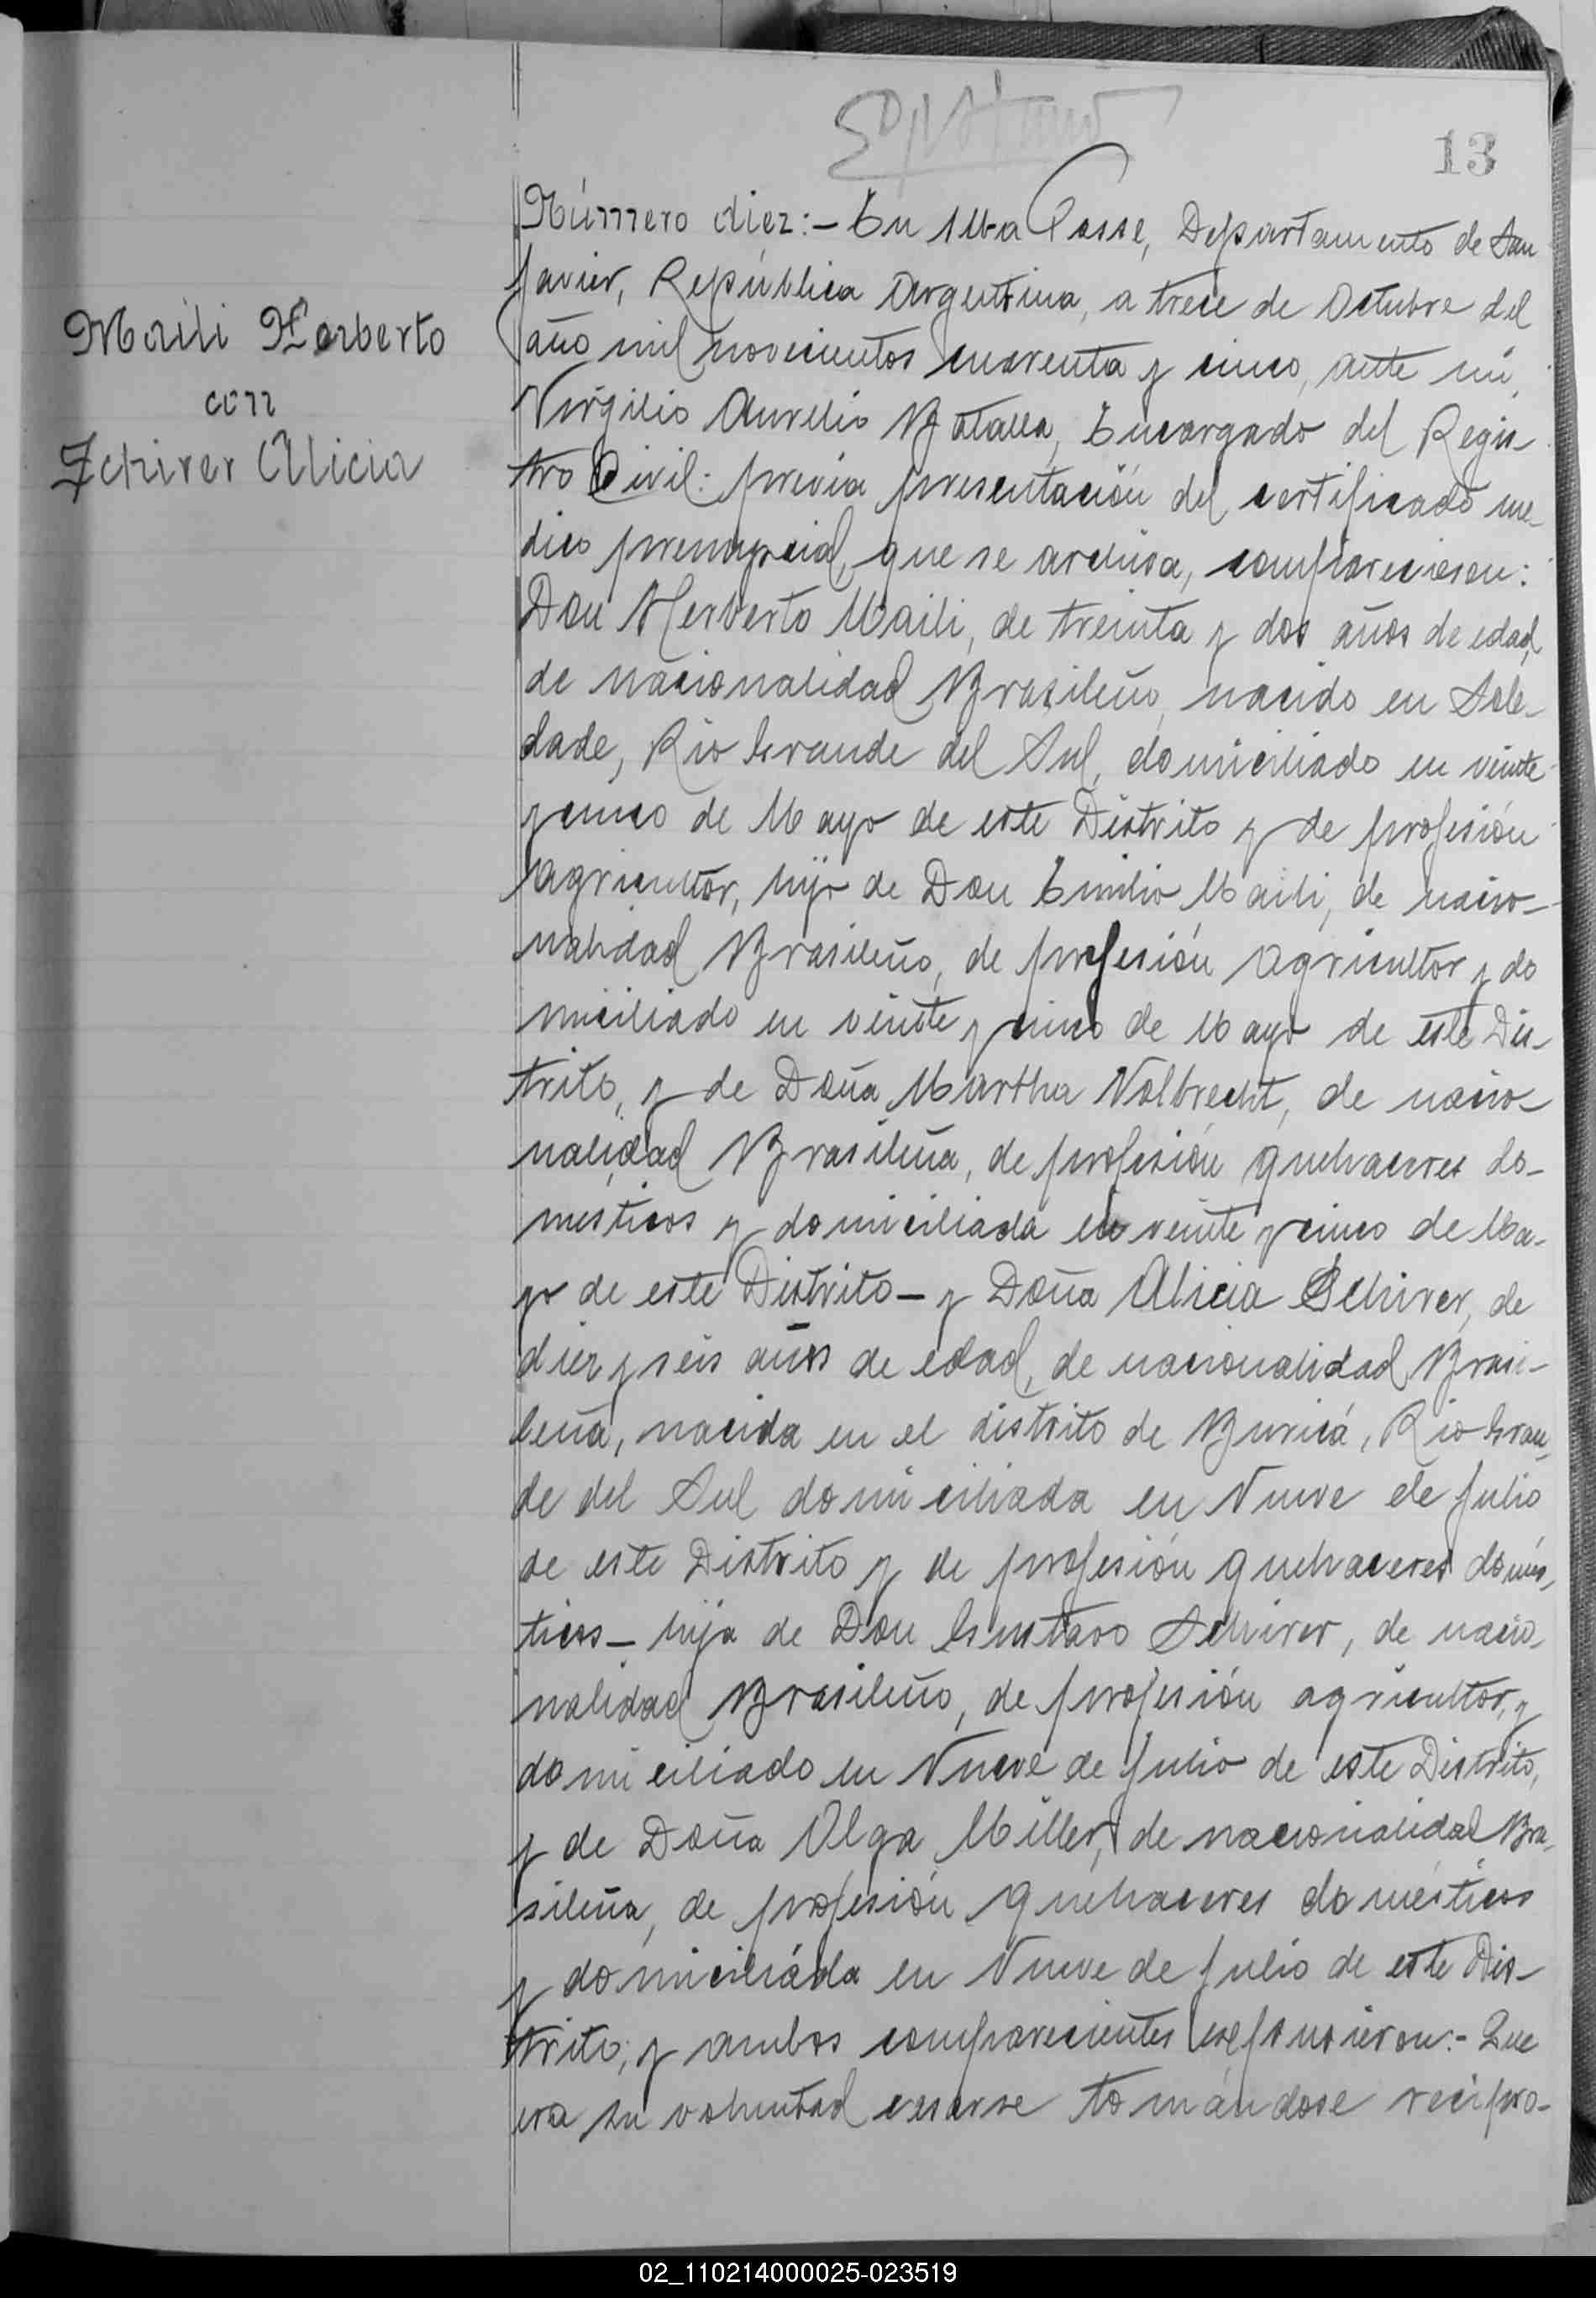 13
Maili Herberto
con
Schirer Alicia
Número diez:- En Alba Posse, Departamento de San
Javier, República Argentina, a trece de Octubre del
año mil novecientos cuarenta y cinco, ante mi,
Virgilio Aurelio Batalla, Encargado del Regis-
tro Civil: previa presentación del certificado mé-
dico prenupcial, que se archiva, comparecieron:
Don Herberto Maili, de treinta y dos años de edad,
de nacionalidad Brasileño, nacido en Sole-
dade, Rio Grande del Sul, domiciliado en veinte
y cinco de Mayo de este Distrito y de profesión
agricultor, hijo de Don Emilio Maili, de nacio-
nalidad Brasileño, de profesión agricultor y do
miciliado en veinte y cinco de Mayo de este Dis-
trito, y de Doña Martha Volbrecht, de nacio-
nalidad Brasileña, de profesión quehaceres do-
mésticos y domiciliada en veinte y cinco de Ma-
yo de este Distrito- y Doña Alicia Schirer, de
diez y seis años de edad, de nacionalidad Brasi-
leña, nacida en el distrito de Buricá, Rio Gran-
de del Sul domiciliada en Nueve de Julio
de este Distrito y de profesión quehaceres domés-
ticos- hija de Don Gustavo Schirer, de nacio-
nalidad Brasileño, de profesión agricultor, y
domiciliado en Nueve de Julio de este Distrito,
y de Doña Olga Miller, de nacionalidad Bra-
sileña, de profesión quehaceres domésticos
y domiciliada en Nueve de Julio de este Dis-
trito; y ambos comparecientes expusieron:- Que
era su voluntad casarse tomándose recipro-
02_110214000025-023519